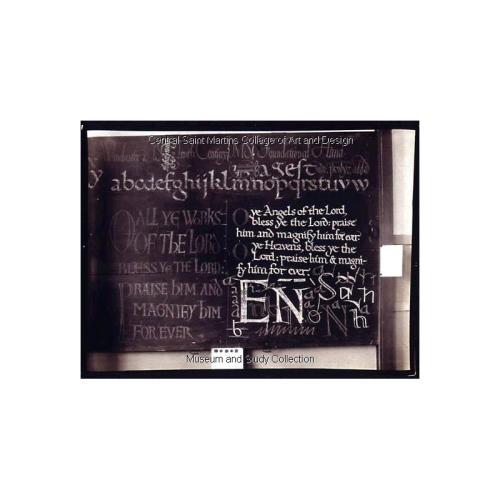 Central Saint Martins College of Art and Design
Winchester
Tenth Century MS Foundational Hand
agest
abcdefghijklmnopqrstuvw
O ALL YE WORKS
OF THE LORD
BLESS YE THE LORD:
PRAISE HIM AND
MAGNIFY HIM
FOR EVER
O ye Angels of the Lord,
bless ye the Lord: praise
him and magnify him for ever.
O ye Heavens, bless ye the
Lord: praise him & magni-
fy him for ever.
EN
Museum and Study Collection